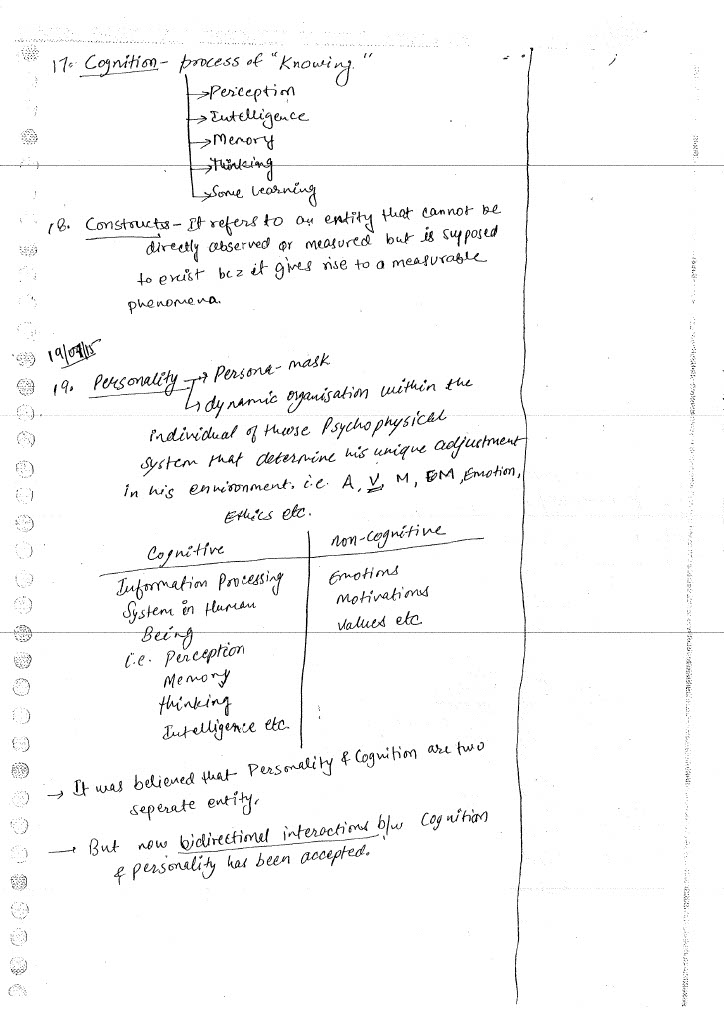 17. Cognition - process of "Knowing."
→ Perception
→ Intelligence
→ Memory
→ Thinking
→ Some learning
18. Constructs - It refers to an entity that cannot be
directly observed or measured but is supposed
to exist bcz it gives rise to a measurable
phenomena.
19. Personality → Persona - mask
↳ dynamic organisation within the
individual of those Psychophysical
system that determine his unique adjustment
in his environment. i.e. A, V, M, EM, Emotion,
Ethics etc.
Cognitive non-cognitive
Information Processing Emotions
System in Human Motivations
Being values etc
i.e. Perception
Memory
thinking
Intelligence etc
→ It was believed that Personality & Cognition are two
seperate entity.
→ But now bidirectional interactions b/w Cognition
& personality has been accepted.